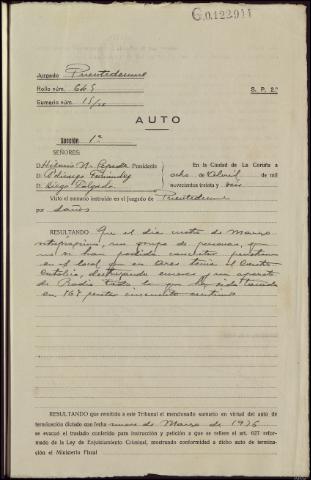 C.0.123911
Juzgado Puentedeume
Rollo núm. 645 S. P. 2ª
Sumario núm. 15/36
AUTO
Sección 1ª
SEÑORES:
D. Hilario N. Presidente En la Ciudad de La Coruña a
D. Odriozgo Fernández ocho de Abril de mil
D. Diego Delgado novecientos treinta y seis
Visto el sumario instruído en el juzgado de Puentedeume
por daños
RESULTANDO: Que el día siete de Marzo
un grupo de personas, que
no se han podido
en el local que en tenía el Centro
Católico, destruyendo enseres y un aparato
de Radio todo lo que ha sido tasado
en 167 pesetas cincuenta centimos
RESULTANDO que remitido a este Tribunal el mencionado sumario en virtud del auto de
terminación dictado con fecha nueve de Marzo de 1936
se evacuó el traslado conferido para instrucción y petición a que se refiere el art. 627 refor-
mado de la Ley de Enjuiciamiento Criminal, mostrando conformidad a dicho auto de termina-
ción el Ministerio Fiscal